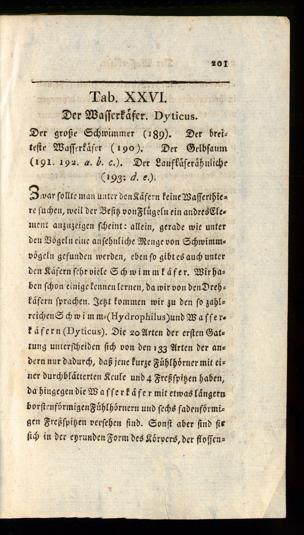 201
Tab. XXVI.
Der Wasserkäfer. Dyticus.
Der große Schwimmer (189). Der brei-
teste Wasserkäfer (190). Der Gelbsaum
(191. 192. a. b. c.). Der Laufkäferähnliche
(193: d. e.).
Zwar sollte man unter den Käfern keine Wasserthie-
re suchen, weil der Besitz von Flügeln ein andres Ele-
ment anzuzeigen scheint: allein, gerade wie unter
den Vögeln eine ansehnliche Menge von Schwimm-
vögeln gefunden werden, eben so gibt es auch unter
den Käfern sehr viele Schwimmkäfer. Wir ha-
ben schon einige kennen lernen, da wir von den Dreh-
käfern sprachen. Jetzt kommen wir zu den so zahl-
reichen Schwimm-(Hydrophilus) und Wasser-
käfern (Dyticus). Die 20 Arten der ersten Gat-
tung unterscheiden sich von den 133 Arten der an-
dern nur dadurch, daß jene kurze Fühlhörner mit ei-
ner durchblätterten Keule und 4 Freßspitzen haben,
da hingegen die Wasserkäfer mit etwas längern
borstenförmigen Fühlhörnern und sechs fadenförmi-
gen Freßspitzen versehen sind. Sonst aber sind sie
sich in der eyrunden Form des Körpers, der flossen-